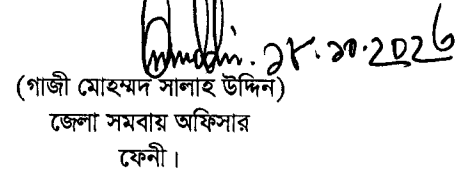 ২৮.১০.2026
(গাজী মোহম্মদ সালাহ উদ্দিন)
জেলা সমবায় অফিসার
ফেনী।